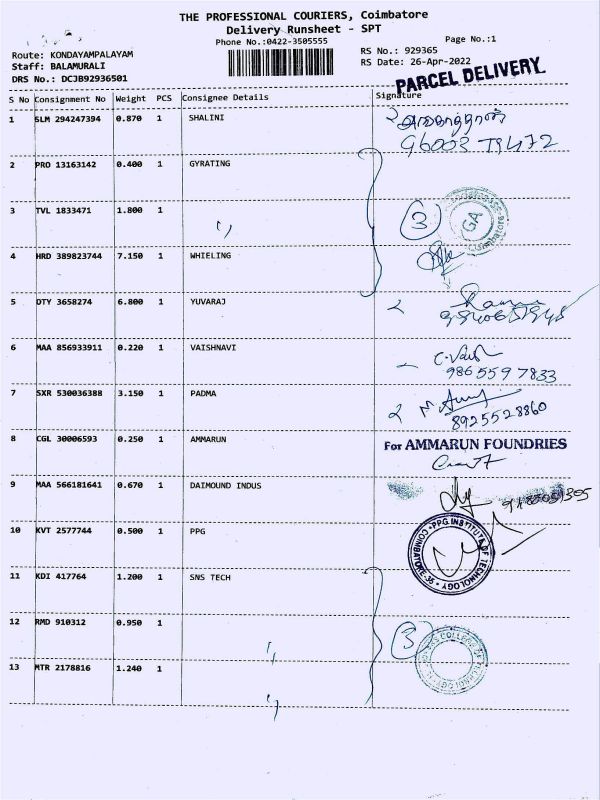 THE PROFESSIONAL COURIERS, Coimbatore
Delivery Runsheet - SPT
Phone No.:0422-3505555
Page No.:1
Route: KONDAYAMPALAYAM
RS No.: 929365
Staff: BALAMURALI
RS Date: 26-Apr-2022
DRS No.: DCJB92936501
PARCEL DELIVERY
S No Consignment No Weight PCS Consignee Details Signature
1 SLM 294247394 0.870 1 SHALINI
2 PRO 13163142 0.400 1 GYRATING
3 TVL 1833471 1.800 1
3
GA
4 HRD 389823744 7.150 1 WHIELING
5 DTY 3658274 6.800 1 YUVARAJ
6 MAA 856933911 0.220 1 VAISHNAVI
9865597833
7 SXR 530036388 3.150 1 PADMA
8925528860
8 CGL 30006593 0.250 1 AMMARUN
For AMMARUN FOUNDRIES
9 MAA 566181641 0.670 1 DAIMOUND INDUS
10 KVT 2577744 0.500 1 PPG
PPG INSTITUTE OF TECHNOLOGY COIMBATORE-35
11 KDI 417764 1.200 1 SNS TECH
12 RMD 910312 0.950 1
3
SNS COLLEGE OF TECHNOLOGY
13 MTR 2178816 1.240 1